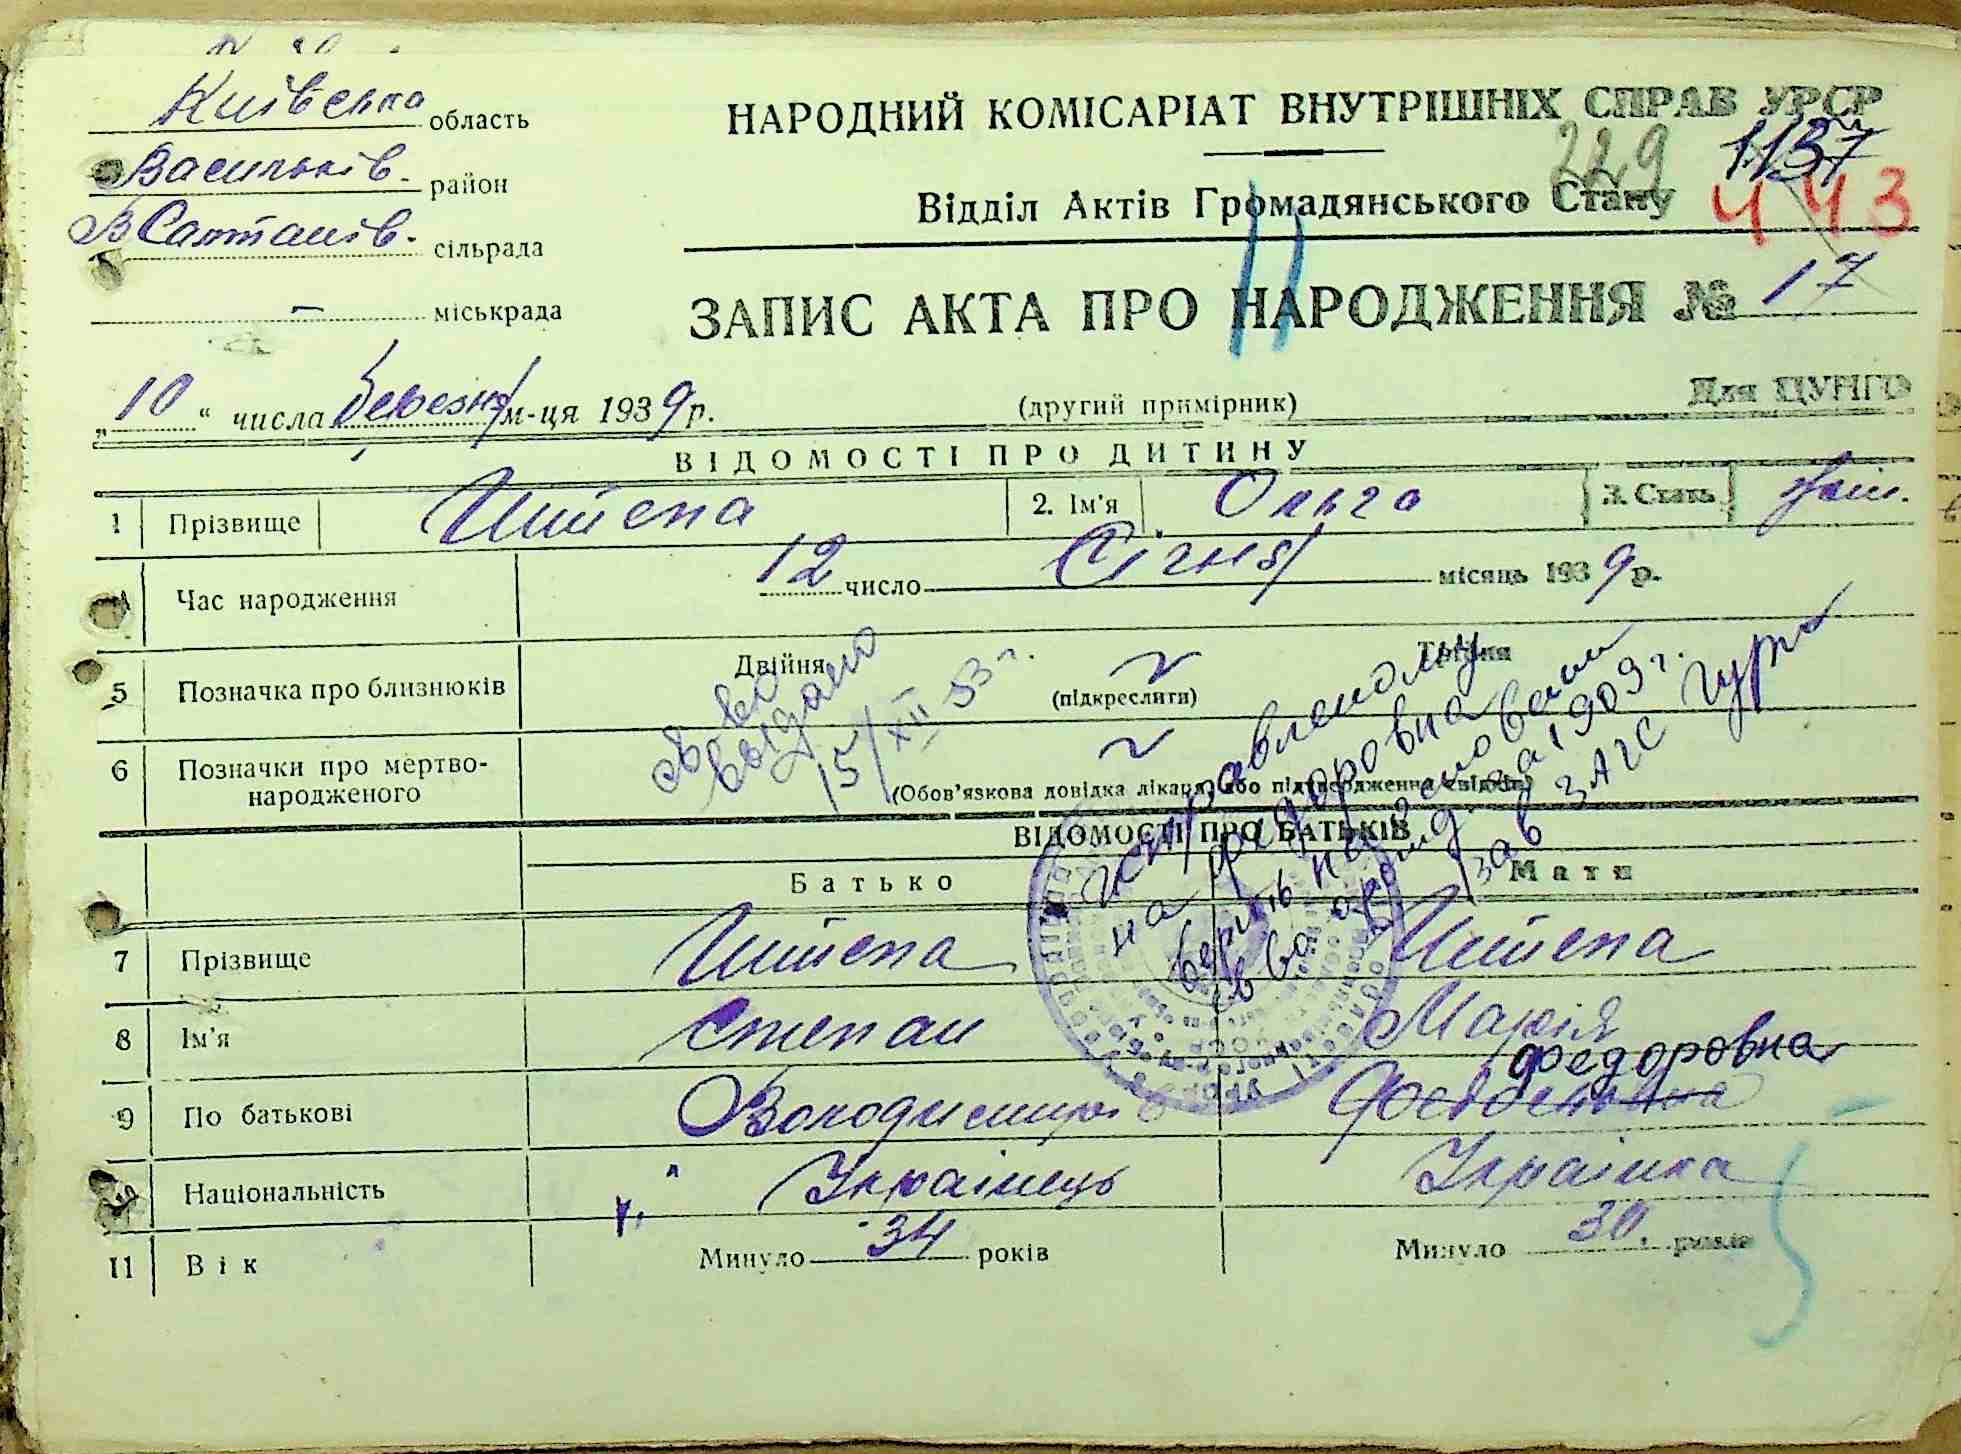 Київська область
Васильків. район
В Салтанів. сільрада
— міськрада
НАРОДНИЙ КОМІСАРІАТ ВНУТРІШНІХ СПРАВ УРСР
229 1137
Відділ Актів Громадянського Стану 443
ЗАПИС АКТА ПРО НАРОДЖЕННЯ № 17
„10“ числа березня м-ця 1939 р.
(другий примірник)
Для ЦУНГО
ВІДОМОСТІ ПРО ДИТИНУ
1 Прізвище Шийєпа 2. Ім'я Ольга 3. Стать жін.
Час народження 12 число Січня місяць 1939 р.
5 Позначка про близнюків Двійня (підкреслити) Трійня
6 Позначки про мертвонародженого
(Обов'язкова довідка лікаря, або підтвердження свідків)
св во
выдано
15/XII 53 г.
исправленому
на Федоровна
верить на основании
св ва о рожд. за 1909 г.
зав ЗАГС
ВІДОМОСТІ ПРО БАТЬКІВ
Батько Мати
7 Прізвище Шийєпа Шийєпа
8 Ім'я Степан Марія
Федоровна
9 По батькові Володимир
Національність Українець Українка
11 Вік Минуло 34 років Минуло 30. років